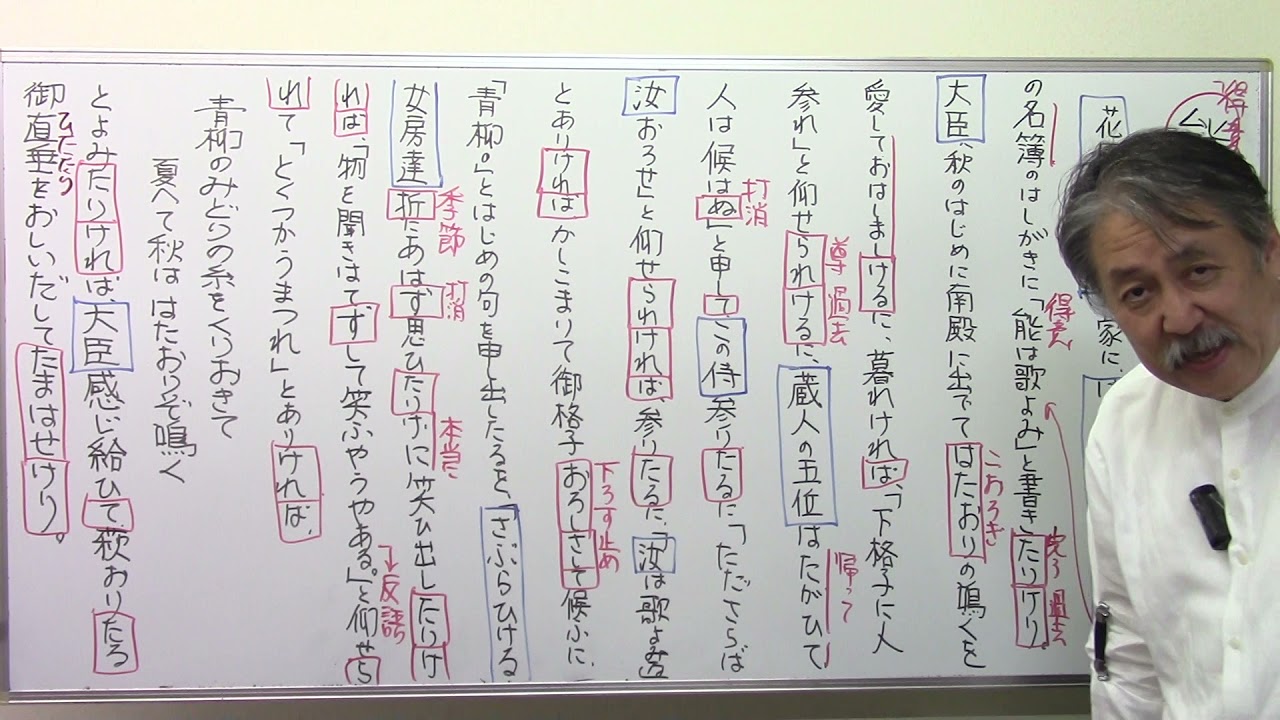 得意
花
家に、は
の名簿のはしがきに「能は歌よみ」と書きたりけり。
得意
完了 過去
大臣、秋のはじめに南殿に出でてはたおりの鳴くを
こおろぎ
愛しておはしましけるに、暮れければ、「下格子に人
参れ」と仰せられけるに、蔵人の五位はたがひて
尊 過去
帰って
人は候はぬ」と申してこの侍参りたるに「たださらば
打消
汝おろせ」と仰せられければ、参りたるに、「汝は歌よみな
とありければかしこまりて御格子おろしさして候ふに、
下ろす止め
「青柳の」とはじめの句を申し出したるを、「さぶらひける
女房達折にあはず思ひたりげに笑ひ出したりけ
季節
打消
本当に
れば、「物を聞きはてずして笑ふやうやある。」と仰せら
反語
れて「とくつかうまつれ」とありければ、
青柳のみどりの糸をくりおきて
夏へて秋ははたおりぞ鳴く
とよみたりければ、大臣感じ給ひて、萩おりたる
御直垂をおしいだしてたまはせけり。
ひたたり